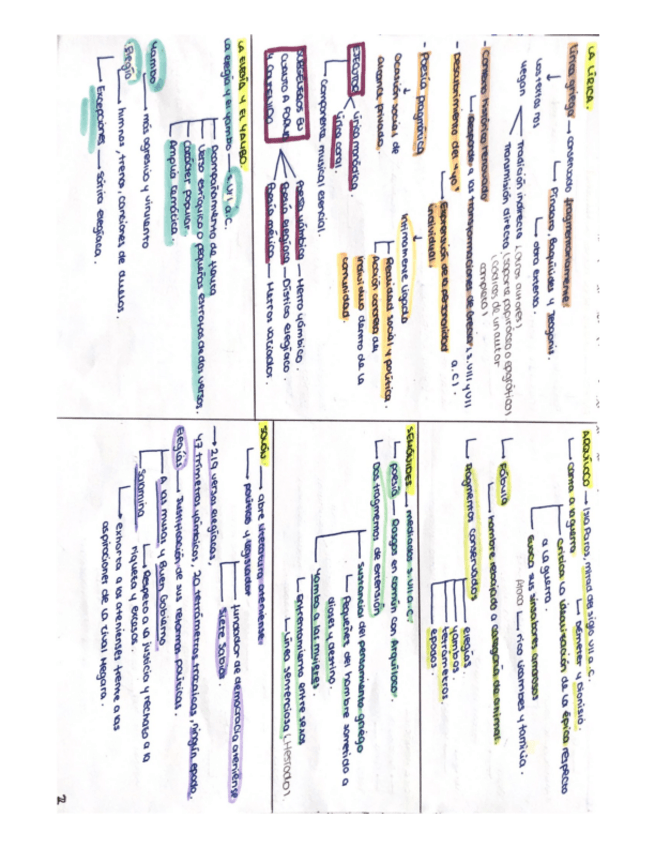 LA LÍRICA.
Lírica griega → conservado fragmentariamente
Píndaro, Baquílides y Teognis.
obra extensa.
Los textos nos llegan
Tradición indirecta (otros autores)
Transmisión directa (soporte papiráceo o epigráfico)
(códices de un autor completo)
- Contexto histórico renovado
Responde a las transformaciones de Grecia (s. VIII y VII a.C.)
- Descubrimiento del "yo"
Expresión de la personalidad individual.
- Poesía pragmática
ocasión social de audiencia privada.
íntimamente ligada
Realidad social y política.
Acción concreta del individuo dentro de la comunidad.
EJECUCIÓN
Lírica monódica.
Lírica coral.
componente musical esencial.
SUBGÉNEROS EN CUANTO A FORMA Y CONTENIDO
Poesía yámbica — Metro yámbico.
Poesía elegíaca — Dístico elegíaco.
Poesía mélica — Metros variados.
LA ELEGÍA Y EL YAMBO.
La elegía y el yambo → s. VII a.C.
Acompañamiento de flauta
Verso estíquico o pequeñas estrofas de dos versos.
Carácter popular.
Amplia temática.
Yambo → más agresivo y virulento
Elegía
himnos, trenos, canciones de duelos.
Excepciones → Sátira elegíaca.
ARQUÍLOCO → Isla Paros, mitad del siglo VII a.C.
Deméter y Dioniso.
Canto a la guerra
Critica la idealización de la épica respecto a la guerra.
Evoca sus sinsabores amorosos
Ataca → rico Licambes y familia.
Fábula
hombre rebajado a categoría de animal.
Fragmentos conservados
elegías
yambos
tetrámetros
epodos.
SEMÓNIDES → mediados s. VII a.C.
Poesía → Rasgos en común con Arquíloco.
Dos fragmentos de extensión
Sustancia del pensamiento griego
Pequeñez del hombre sometido a dioses y destino.
Yambo a las mujeres.
Enfrentamiento entre sexos
Línea sentenciosa (Hesíodo).
SOLÓN → abre literatura ateniense.
político y legislador
fundador de democracia ateniense
Siete Sabios.
→ 219 versos elegíacos,
47 trímetros yámbicos, 20 tetrámetros trocaicos, ningún epodo.
Elegías → Justificación de sus reformas políticas.
A las musas y Buen Gobierno
Respeto a la justicia y rechazo a la riqueza y excesos.
Salamina
exhorta a los atenienses frente a las aspiraciones de la rival Megara.
2